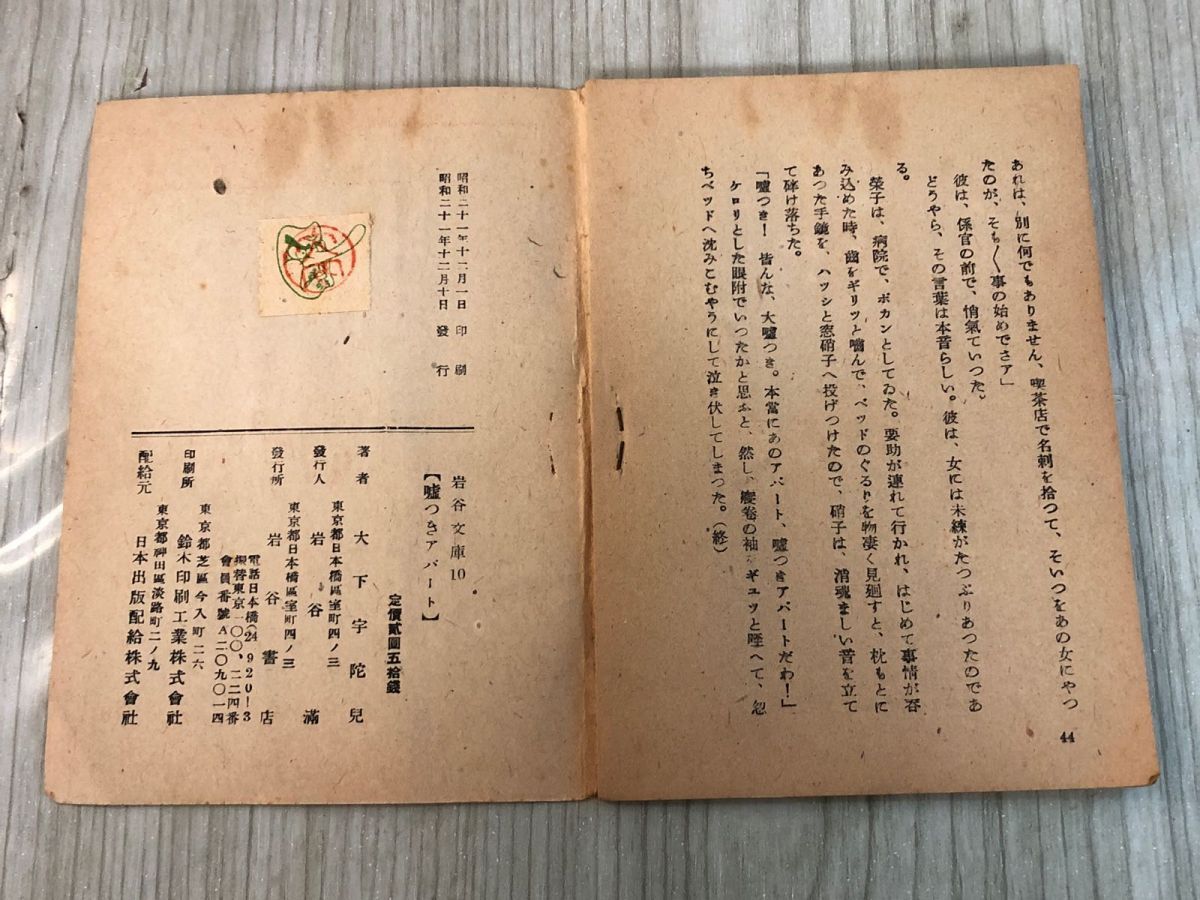 あれは、別に何でもありません、喫茶店で名刺を拾つて、そいつをあの女にやつ
たのが、そも〳〵事の始めでさア」
彼は、係官の前で、悄氣ていつた。
どうやら、その言葉は本音らしい。彼は、女には未練がたつぷりあつたのであ
る。
榮子は、病院で、ポカンとしてゐた。要助が連れて行かれ、はじめて事情が呑
み込めた時、齒をギリツと噛んで、ベッドのぐるりを物凄く見廻すと、枕もとに
あつた手鏡を、ハツシと窓硝子へ投げつけたので、硝子は、消魂ましい音を立て
て碎け落ちた。
「嘘つき！　皆んな、大嘘つき。本當にあのアパート、嘘つきアパートだわ！」
ケロリとした眼附でいつたかと思ふと、然し、寢卷の袖をギユツと咥へて、忽
ちベッドへ沈みこむやうにして泣き伏してしまつた。（終）
44
昭和二十一年十二月一日　印刷
昭和二十一年十二月十日　發行
岩谷文庫10
【嘘つきアパート】
定價貳圓五拾錢
著者　大下宇陀兒
東京都日本橋區室町四ノ三
發行人　岩谷滿
東京都日本橋區室町四ノ三
發行所　岩谷書店
電話日本橋(24)920-3
振替東京一〇〇、二二四番
會員番號A二〇九〇一四
東京都芝區今入町二六
印刷所　鈴木印刷工業株式會社
東京都神田區淡路町二ノ九
配給元　日本出版配給株式會社